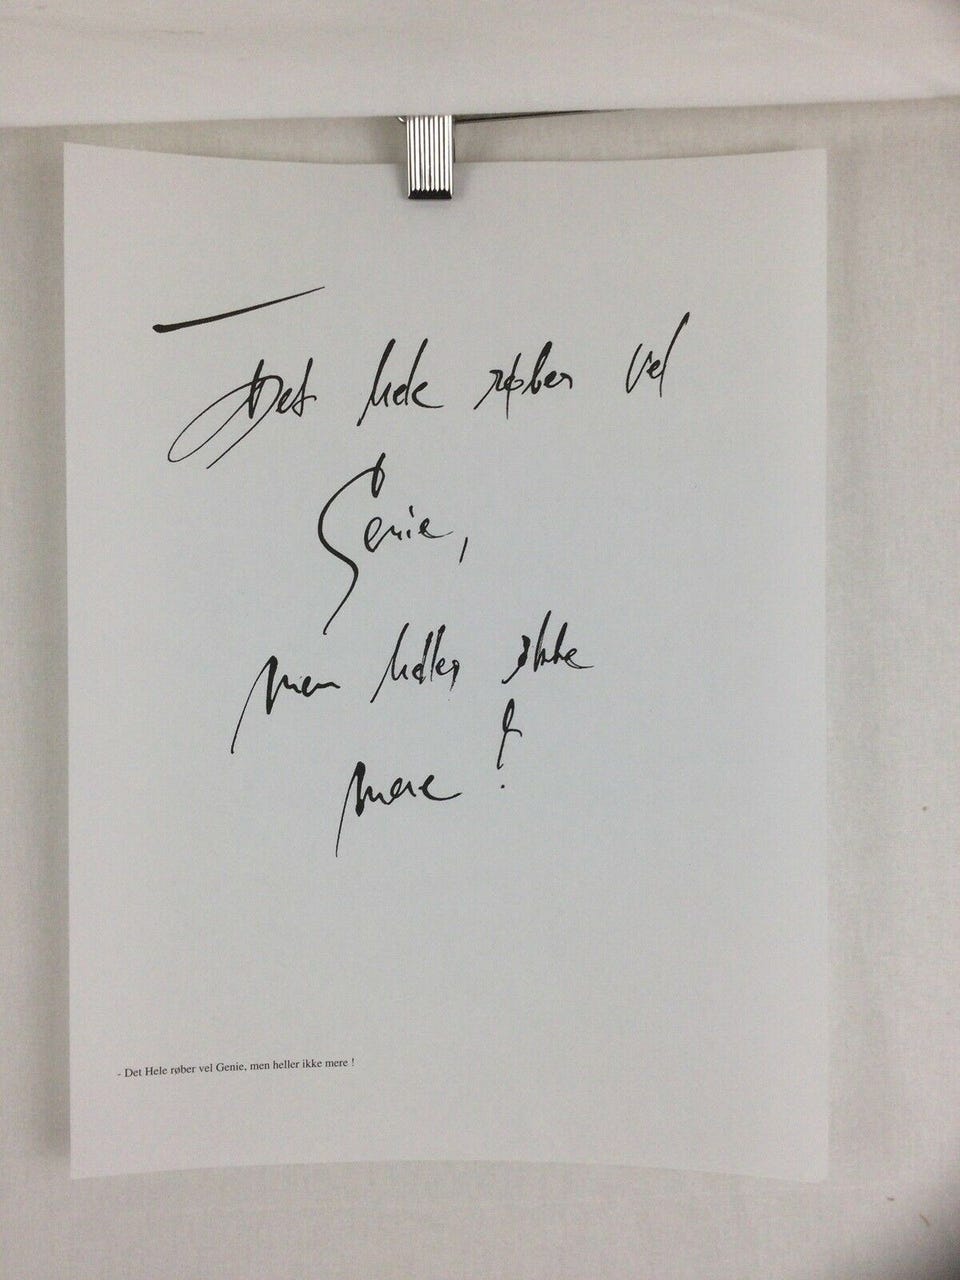 — Det Hele røber vel
Genie,
men heller ikke
mere !
- Det Hele røber vel Genie, men heller ikke mere !